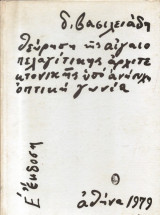 δ. βασιλειάδη
θεώρηση της αιγαιο
πελαγίτικης αρχιτε
κτονικής υπό ανήσυχη
οπτική γωνία
Ε΄ Έκδοση
αθήνα 1979